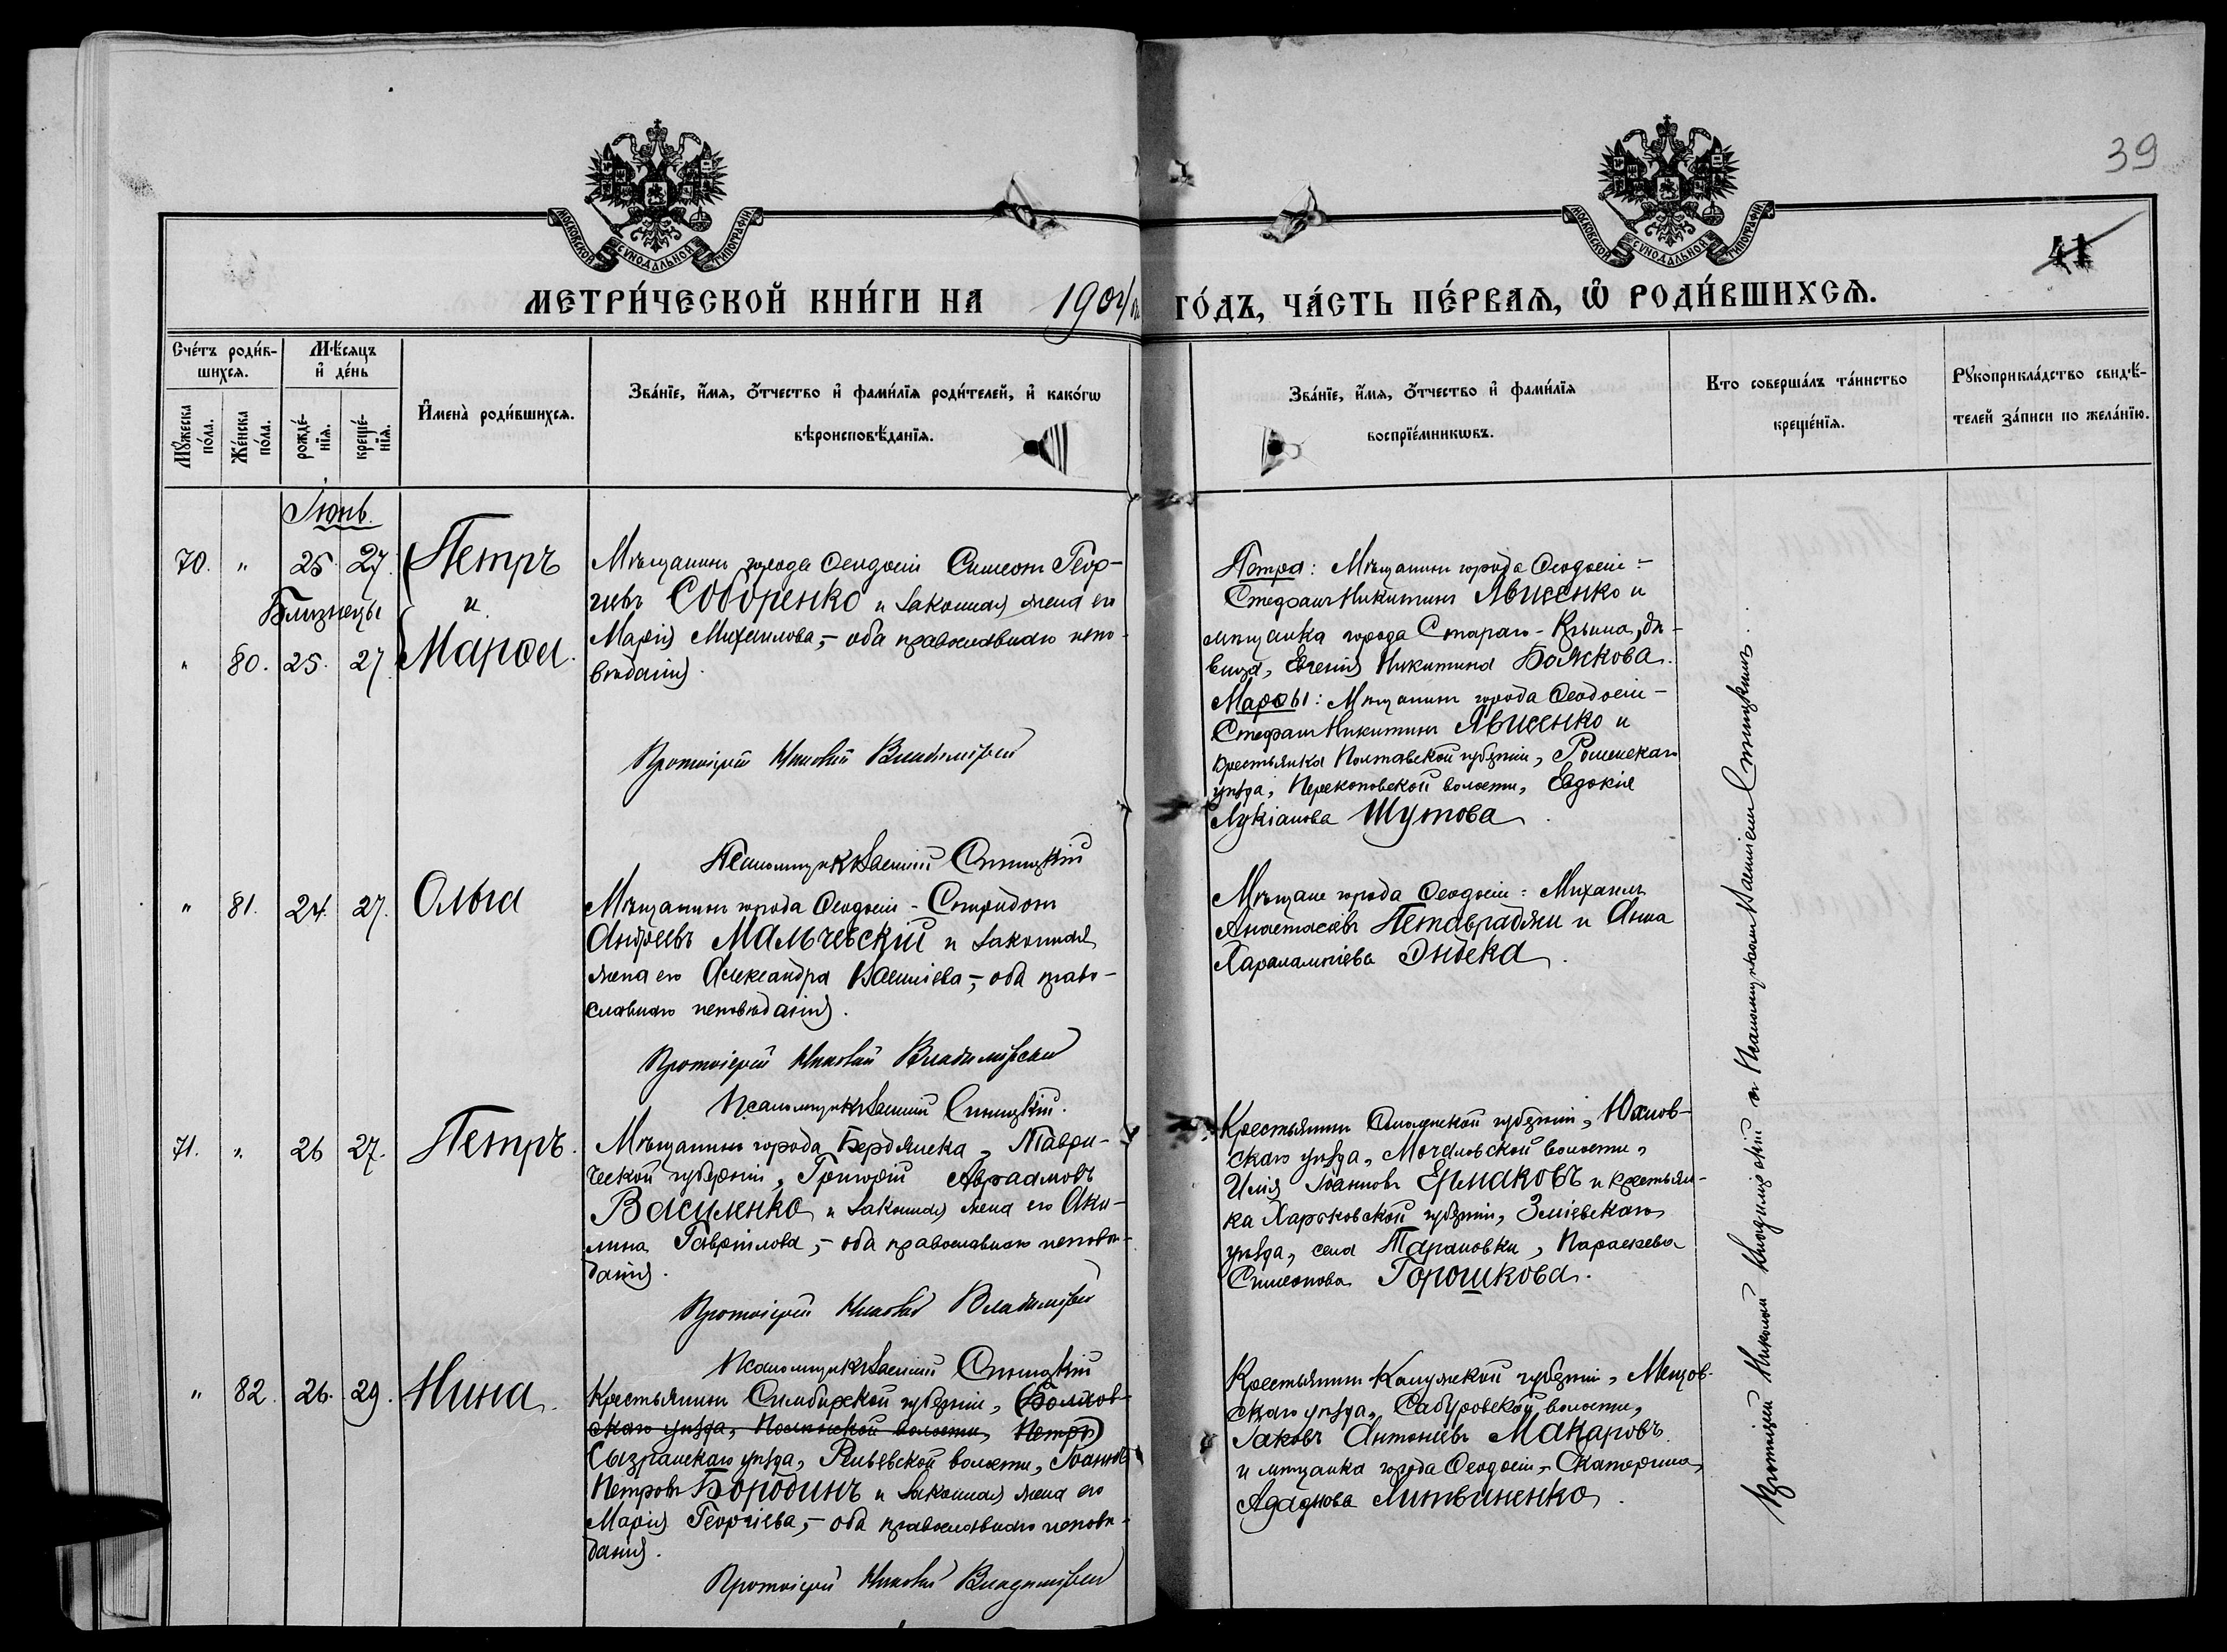 39
41
МОСКОВСКОЙ СѴНОДАЛЬНОЙ ТИПОГРАФІИ
МОСКОВСКОЙ СѴНОДАЛЬНОЙ ТИПОГРАФІИ
МЕТРИ́ЧЕСКОЙ КНИ́ГИ НА 1904 ГО́ДЪ, ЧА́СТЬ ПЕ́РВАЯ, Ѡ РОДИ́ВШИХСЯ.
Сче́тъ роди́в-
шихся.
Му́жеска по́ла.
Же́нска по́ла.
Мѣ́сяцъ и҆ де́нь
рожде́-нїя.
креще́-нїя.
И҆мена̀ роди́вшихся.
Зва́нїе, и҆́мя, ѻ҆́тчество и҆ фами́лїя роди́телей, и҆ како́гѡ
вѣроисповѣ́данїя.
Зва́нїе, и҆́мя, ѻ҆́тчество и҆ фами́лїя
воспрїе́мникѡвъ.
Кто соверша́лъ та́инство
креще́нїя.
Рꙋкоприкла́дство свидѣ́-
телей за́писи по жела́нїю.
Іюнь.
70. " 25. 27. Петръ
Близнецы и
" 80. 25. 27. Марѳа.
Мѣщанинъ города Ѳеодосіи Симеонъ Геор-
гіевъ Соборенко и законная жена его
Марія Михаилова, – оба православнаго испо-
вѣданія.
Протоіерей Николай Владимірскій
Псаломщикъ Василій Синицкій
Петра: Мѣщанинъ города Ѳеодосіи –
Стефанъ Никитинъ Явисенко и
мѣщанка города Стараго-Крыма, дѣ-
вица, Евгенія Никитина Божкова.
Марѳы: Мѣщанинъ города Ѳеодосіи –
Стефанъ Никитинъ Явисенко и
крестьянка Полтавской губерніи, Роменскаго
уѣзда, Перекоповской волости, Евдокія
Лукіанова Шутова.
" 81. 24. 27. Ольга
Мѣщанинъ города Ѳеодосіи – Спиридонъ
Андреевъ Мальчевскій и законная
жена его Александра Васильева, – оба право-
славнаго исповѣданія.
Протоіерей Николай Владимірскій
Псаломщикъ Василій Синицкій.
Мѣщане города Ѳеодосіи: Михаилъ
Анастасіевъ Петавраджи и Анна
Харалампіева Эндека.
71. " 26 27. Петръ.
Мѣщанинъ города Бердянска, Таври-
ческой губерніи, Григорій Авраамовъ
Василенко и законная жена его Аки-
лина Гавріилова, – оба православнаго исповѣ-
данія.
Протоіерей Николай Владимірскій
Псаломщикъ Василій Синицкій
Крестьянинъ Смоленской губерніи, Юхнов-
скаго уѣзда, Мочаловской волости,
Илія Іоанновъ Ермаковъ и крестьян-
ка Харьковской губерніи, Зміевскаго
уѣзда, села Тарановки, Параскева
Симеонова Горошкова.
" 82. 26. 29. Нина.
Крестьянинъ Симбирской губерніи,
скаго уѣзда, волости, Петръ
Сызранскаго уѣзда, Репьевской волости, Іоаннъ
Петровъ Бородинъ и законная жена его
Марія Георгіева, – оба православнаго исповѣ-
данія.
Протоіерей Николай Владимірскій
Крестьянинъ Калужской губерніи, Мещов-
скаго уѣзда, Сабуровской волости,
Іаковъ Антоніевъ Макаровъ
и мѣщанка города Ѳеодосіи, – Екатерина
Литвиненко.
Протоіерей Николай Владимірскій съ Псаломщикомъ Василіемъ Синицкимъ.